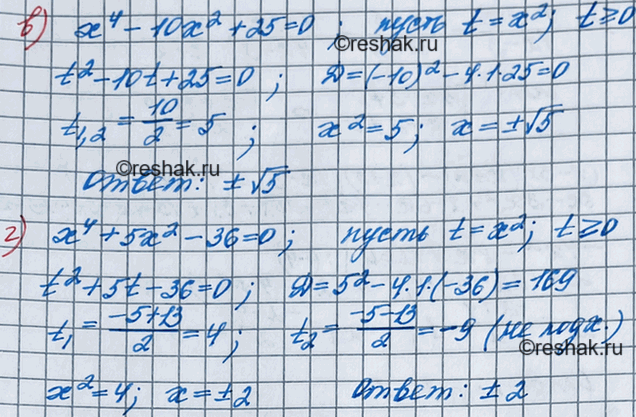 в) x⁴ − 10x² + 25 = 0 ; пусть t = x²; t ≥ 0
©reshak.ru
t² − 10t + 25 = 0 ; Д = (−10)² − 4·1·25 = 0
t₁,₂ = 10/2 = 5 ; x² = 5; x = ±√5
©reshak.ru
Ответ: ±√5
г) x⁴ + 5x² − 36 = 0 ; пусть t = x²; t ≥ 0
t² + 5t − 36 = 0 ; Д = 5² − 4·1·(−36) = 169
t₁ = (−5+13)/2 = 4 ; t₂ = (−5−13)/2 = −9 (не подх.)
©reshak.ru
x² = 4; x = ±2 Ответ: ±2